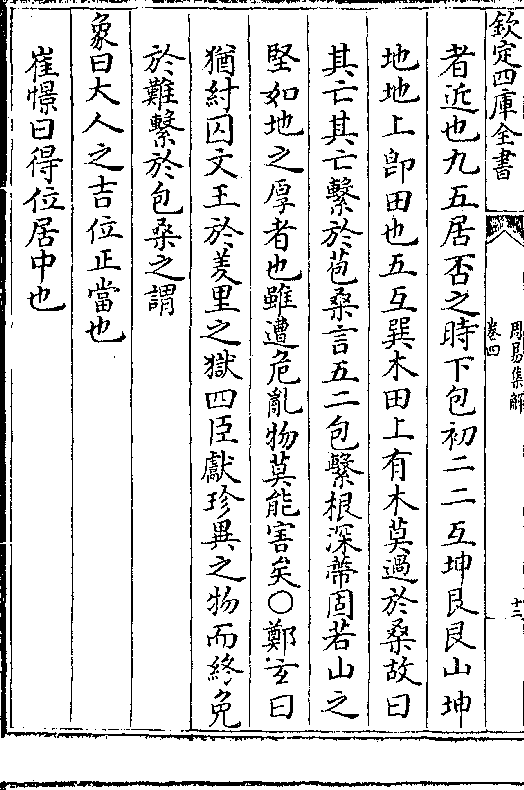 欽定四庫全書
周易集解
卷四
十三
者近也九五居否之時下包初二二互坤艮艮山坤
地地上卽田也五互巽木田上有木莫過於桑故曰
其亡其亡繫於苞桑言五二包繫根深蔕固若山之
堅如地之厚者也雖遭危亂物莫能害矣○鄭玄曰
猶紂囚文王於羑里之獄四臣獻珍異之物而終免
於難繫於包桑之謂
象曰大人之吉位正當也
崔憬曰得位居中也